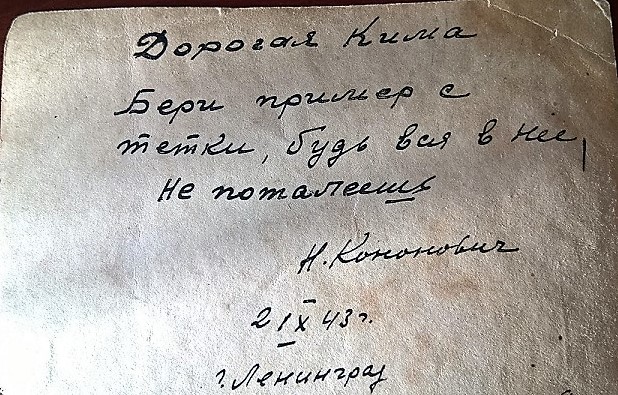 Дорогая Кима
Бери пример с
тетки, будь вся в нее,
Не пожалеешь
Н. Кононович
2 IX 43 г.
г. Ленинград